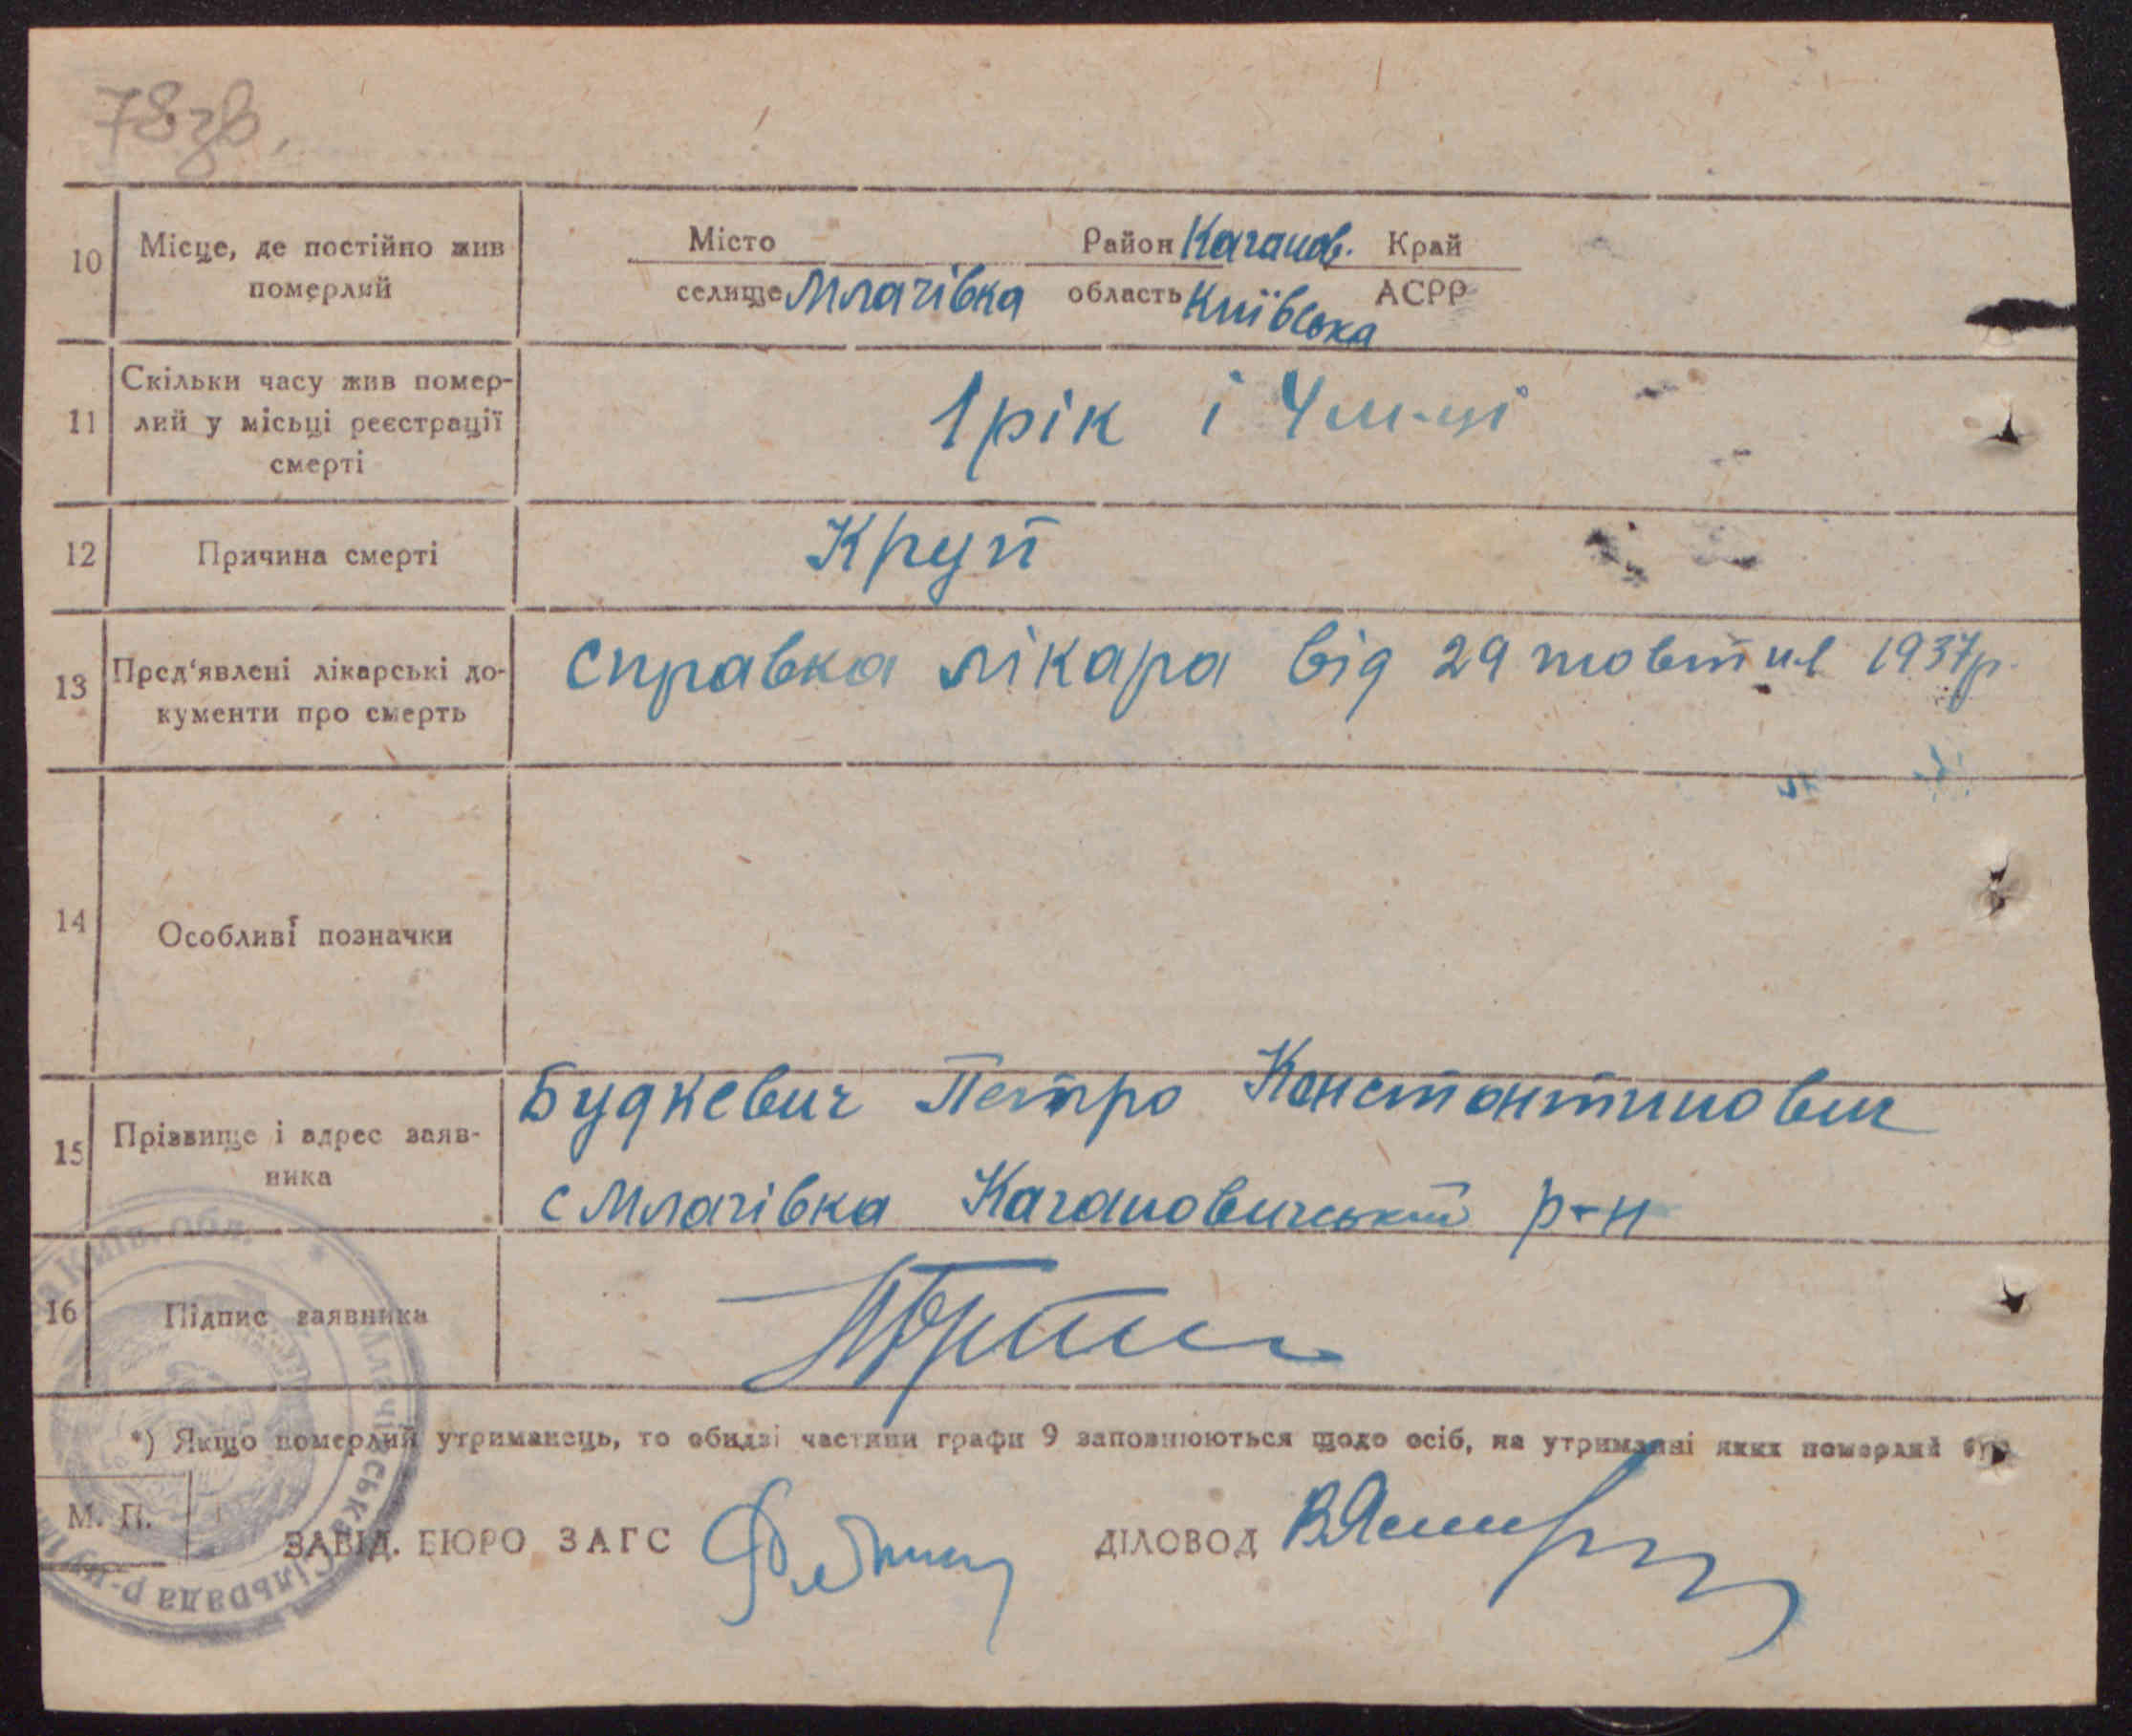 78зв.
10 Місце, де постійно жив Місто Район Каганов. Край
померлий селище Млачівка область Київська АСРР
Скільки часу жив помер-
11 лий у місьці реєстрації 1 рік і 4 м-ці
смерті
12 Причина смерті Круп
13 Пред'явлені лікарські до- Справка лікара від 29 жовтня 1937р.
кументи про смерть
14 Особливі позначки
Будкевич Петро Константинович
15 Прізвище і адрес заяв-
ника с Млачівка Кагановичський р-н
16 Підпис заявника
*) Якщо померлий утриманець, то обидві частини графи 9 заповнюються щодо осіб, на утриманні яких померлий був
М. П.
ЗАВІД. БЮРО ЗАГС ДІЛОВОД
Київ. Обл. * Млачівська Сільрада р-н